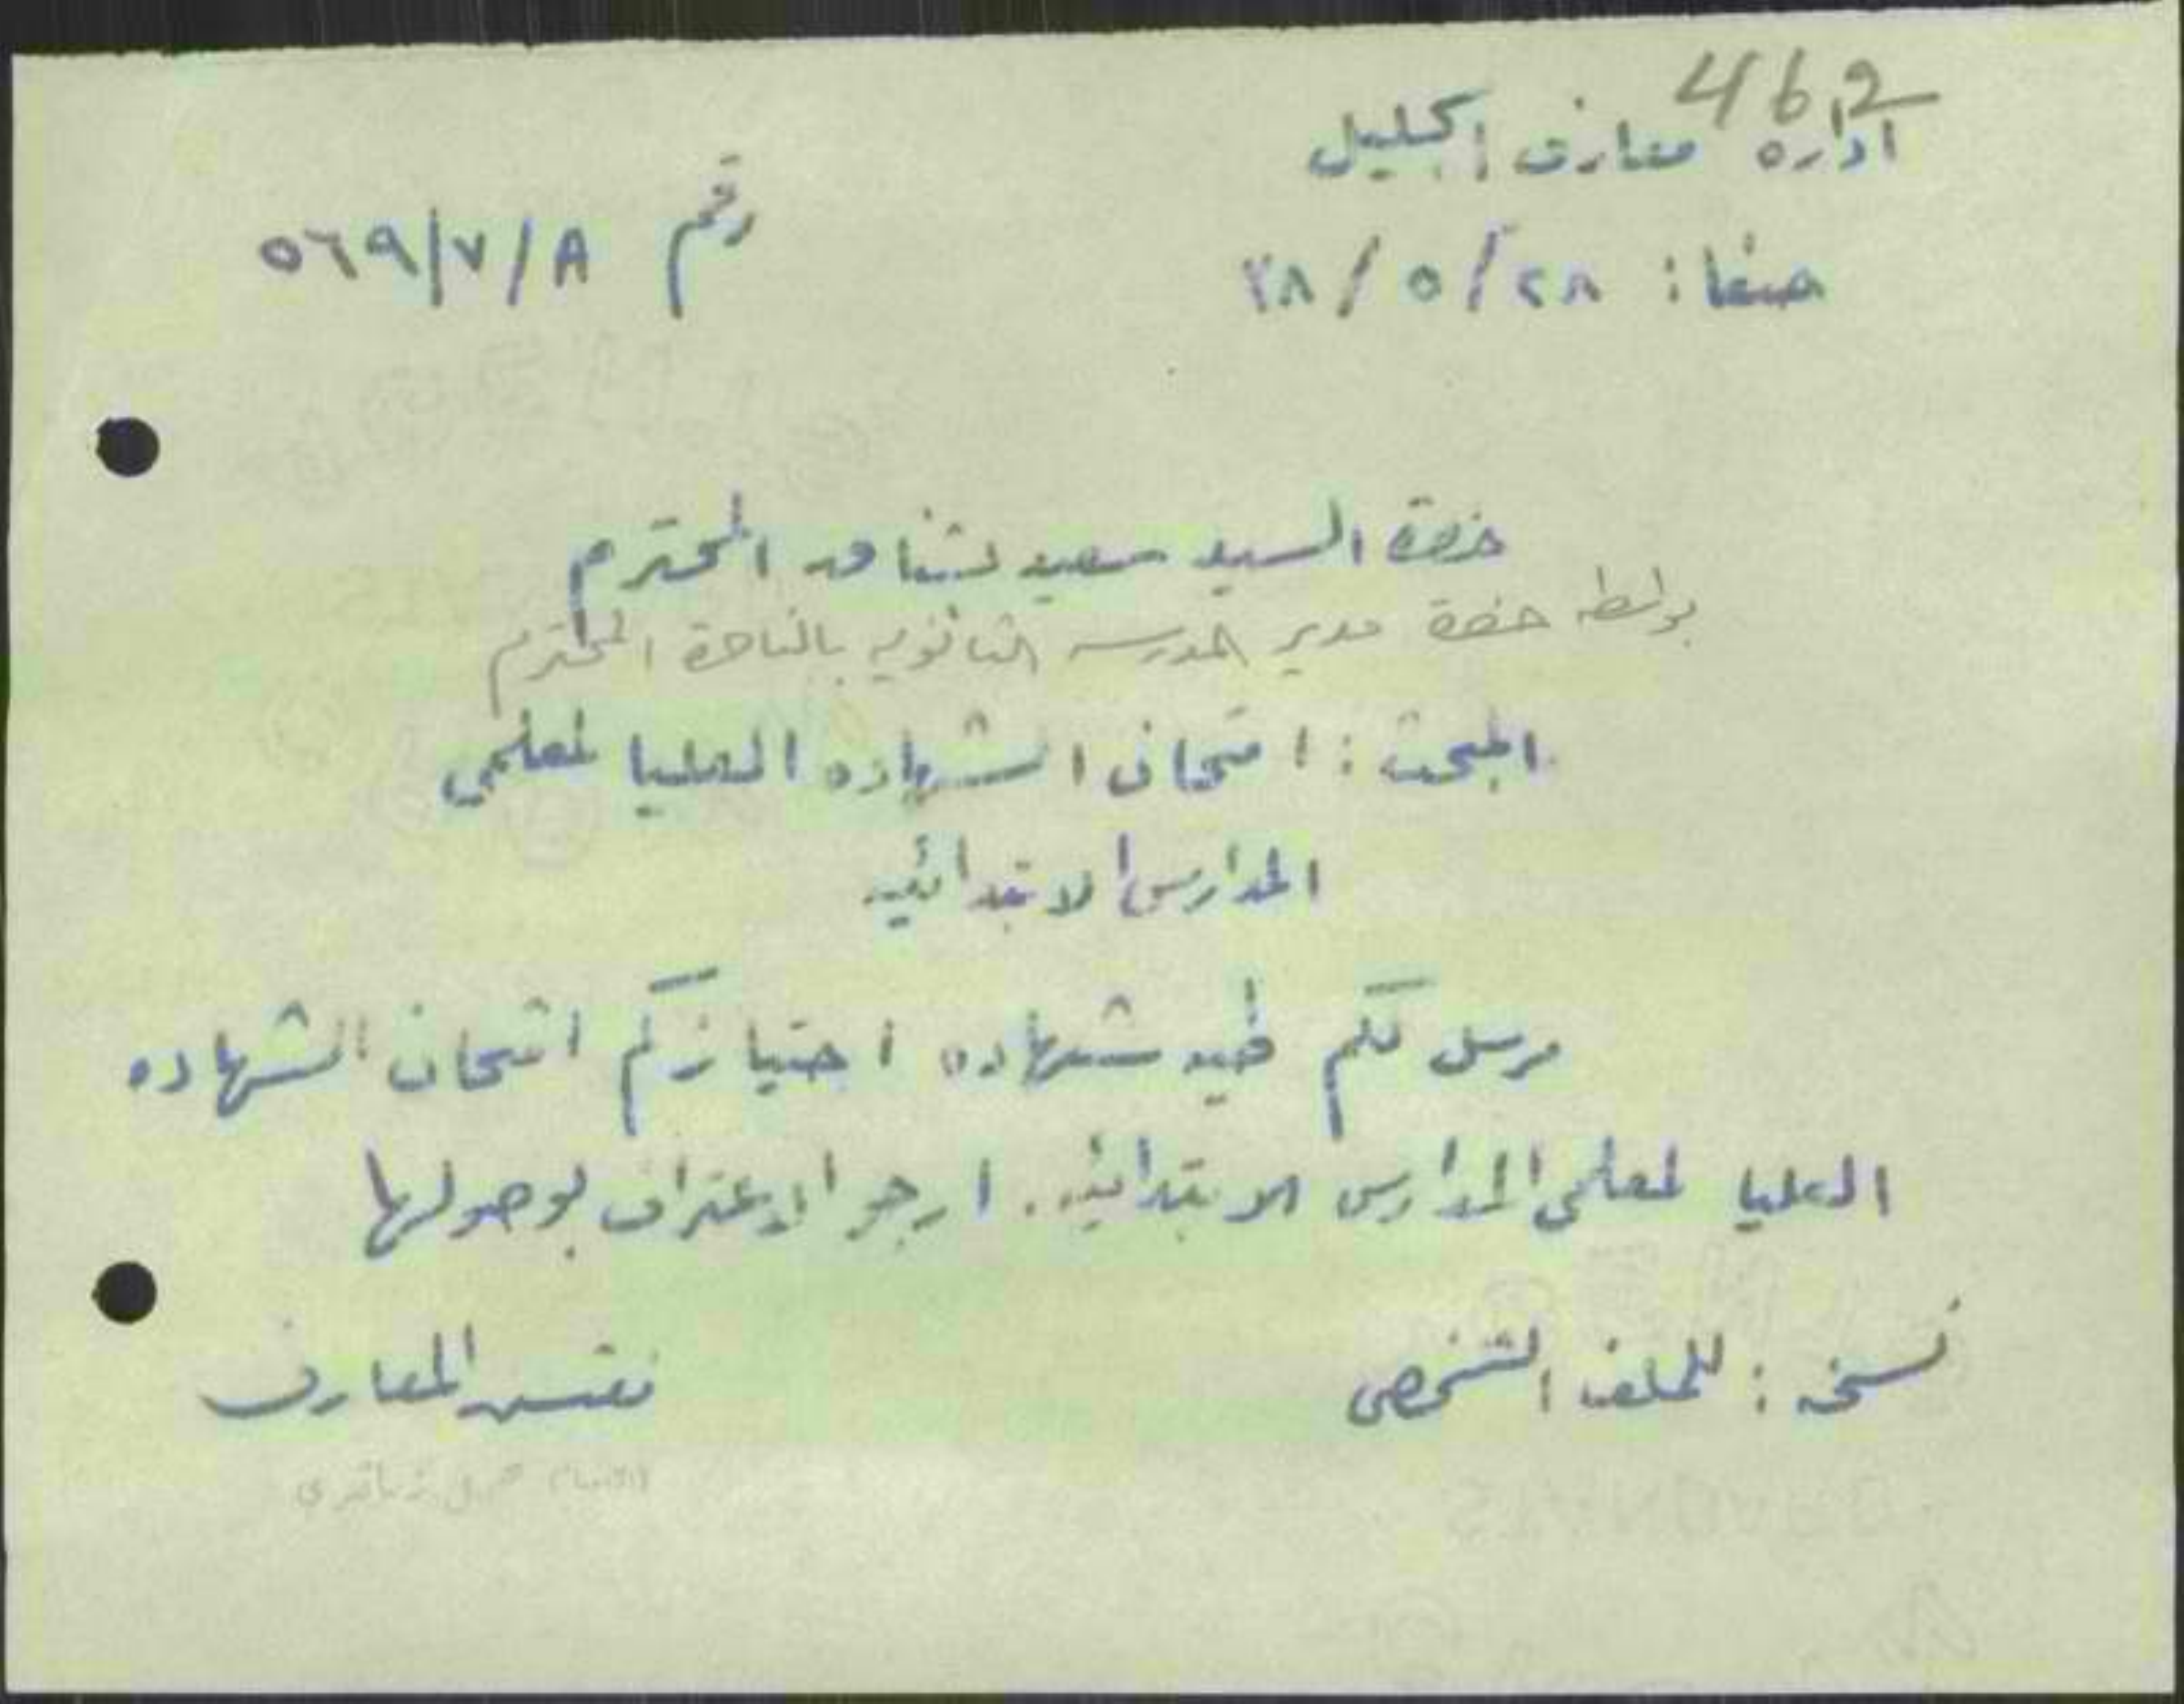 462
اداره معارف الجليل
رقم A/٧/٥٦٩
صفا: ٢٨/٥/٣٨
حضرة السيد سعيد المحترم
بواسطه حضرة مدير المدرسه الثانويه بالناصرة المحترم
المبحث: امتحان الشهاده العليا لمعلمي
المدارس الابتدائيه
مرسل لكم طيه شهاده اجتيازكم امتحان الشهاده
العليا لمعلمي المدارس الابتدائيه. ارجو الاعتراف بوصولها
نسخه: للملف الشخصي
مفتش المعارف